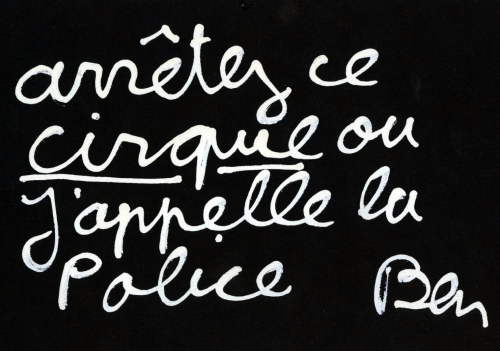 arrêtez ce
cirque ou
j'appelle la
Police Ben